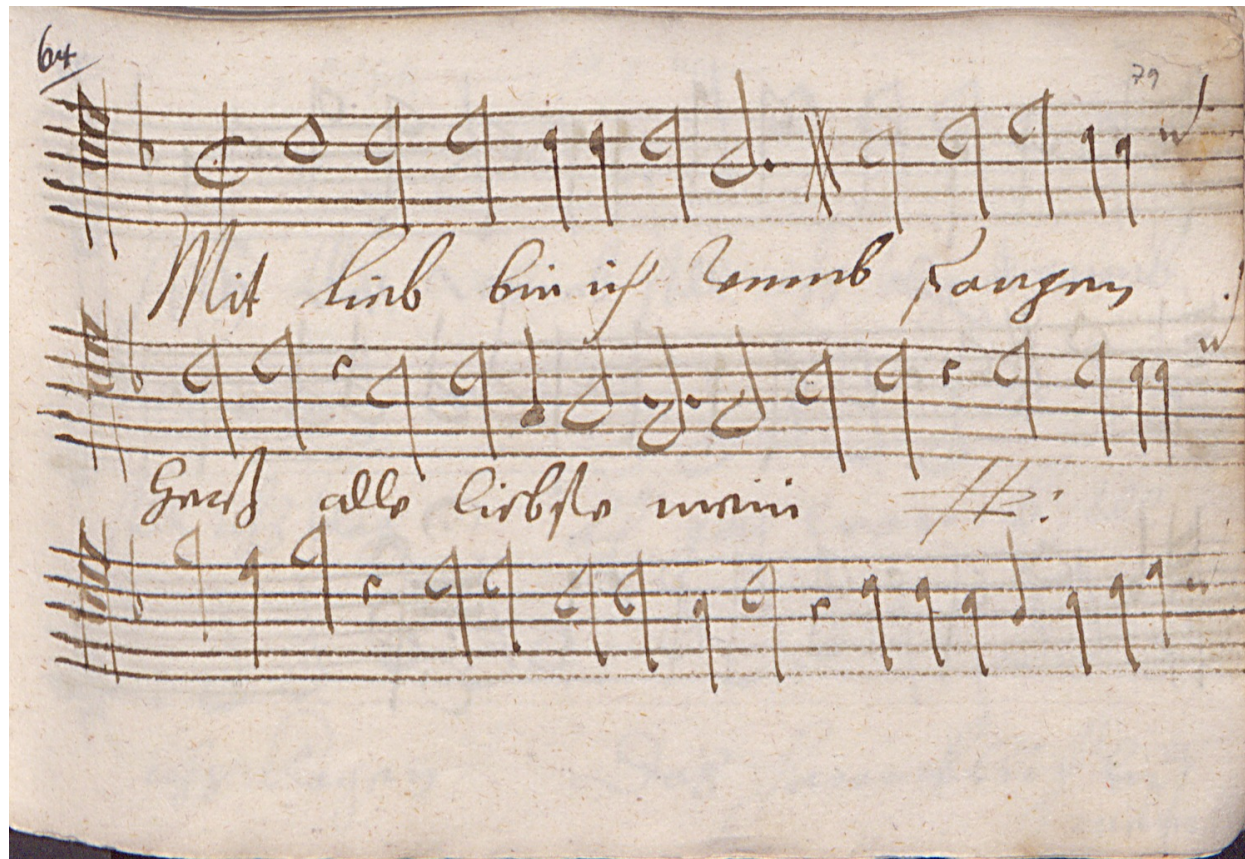 64
79
Mit lieb bin ich vmb fangen
Hertz alle liebste mein